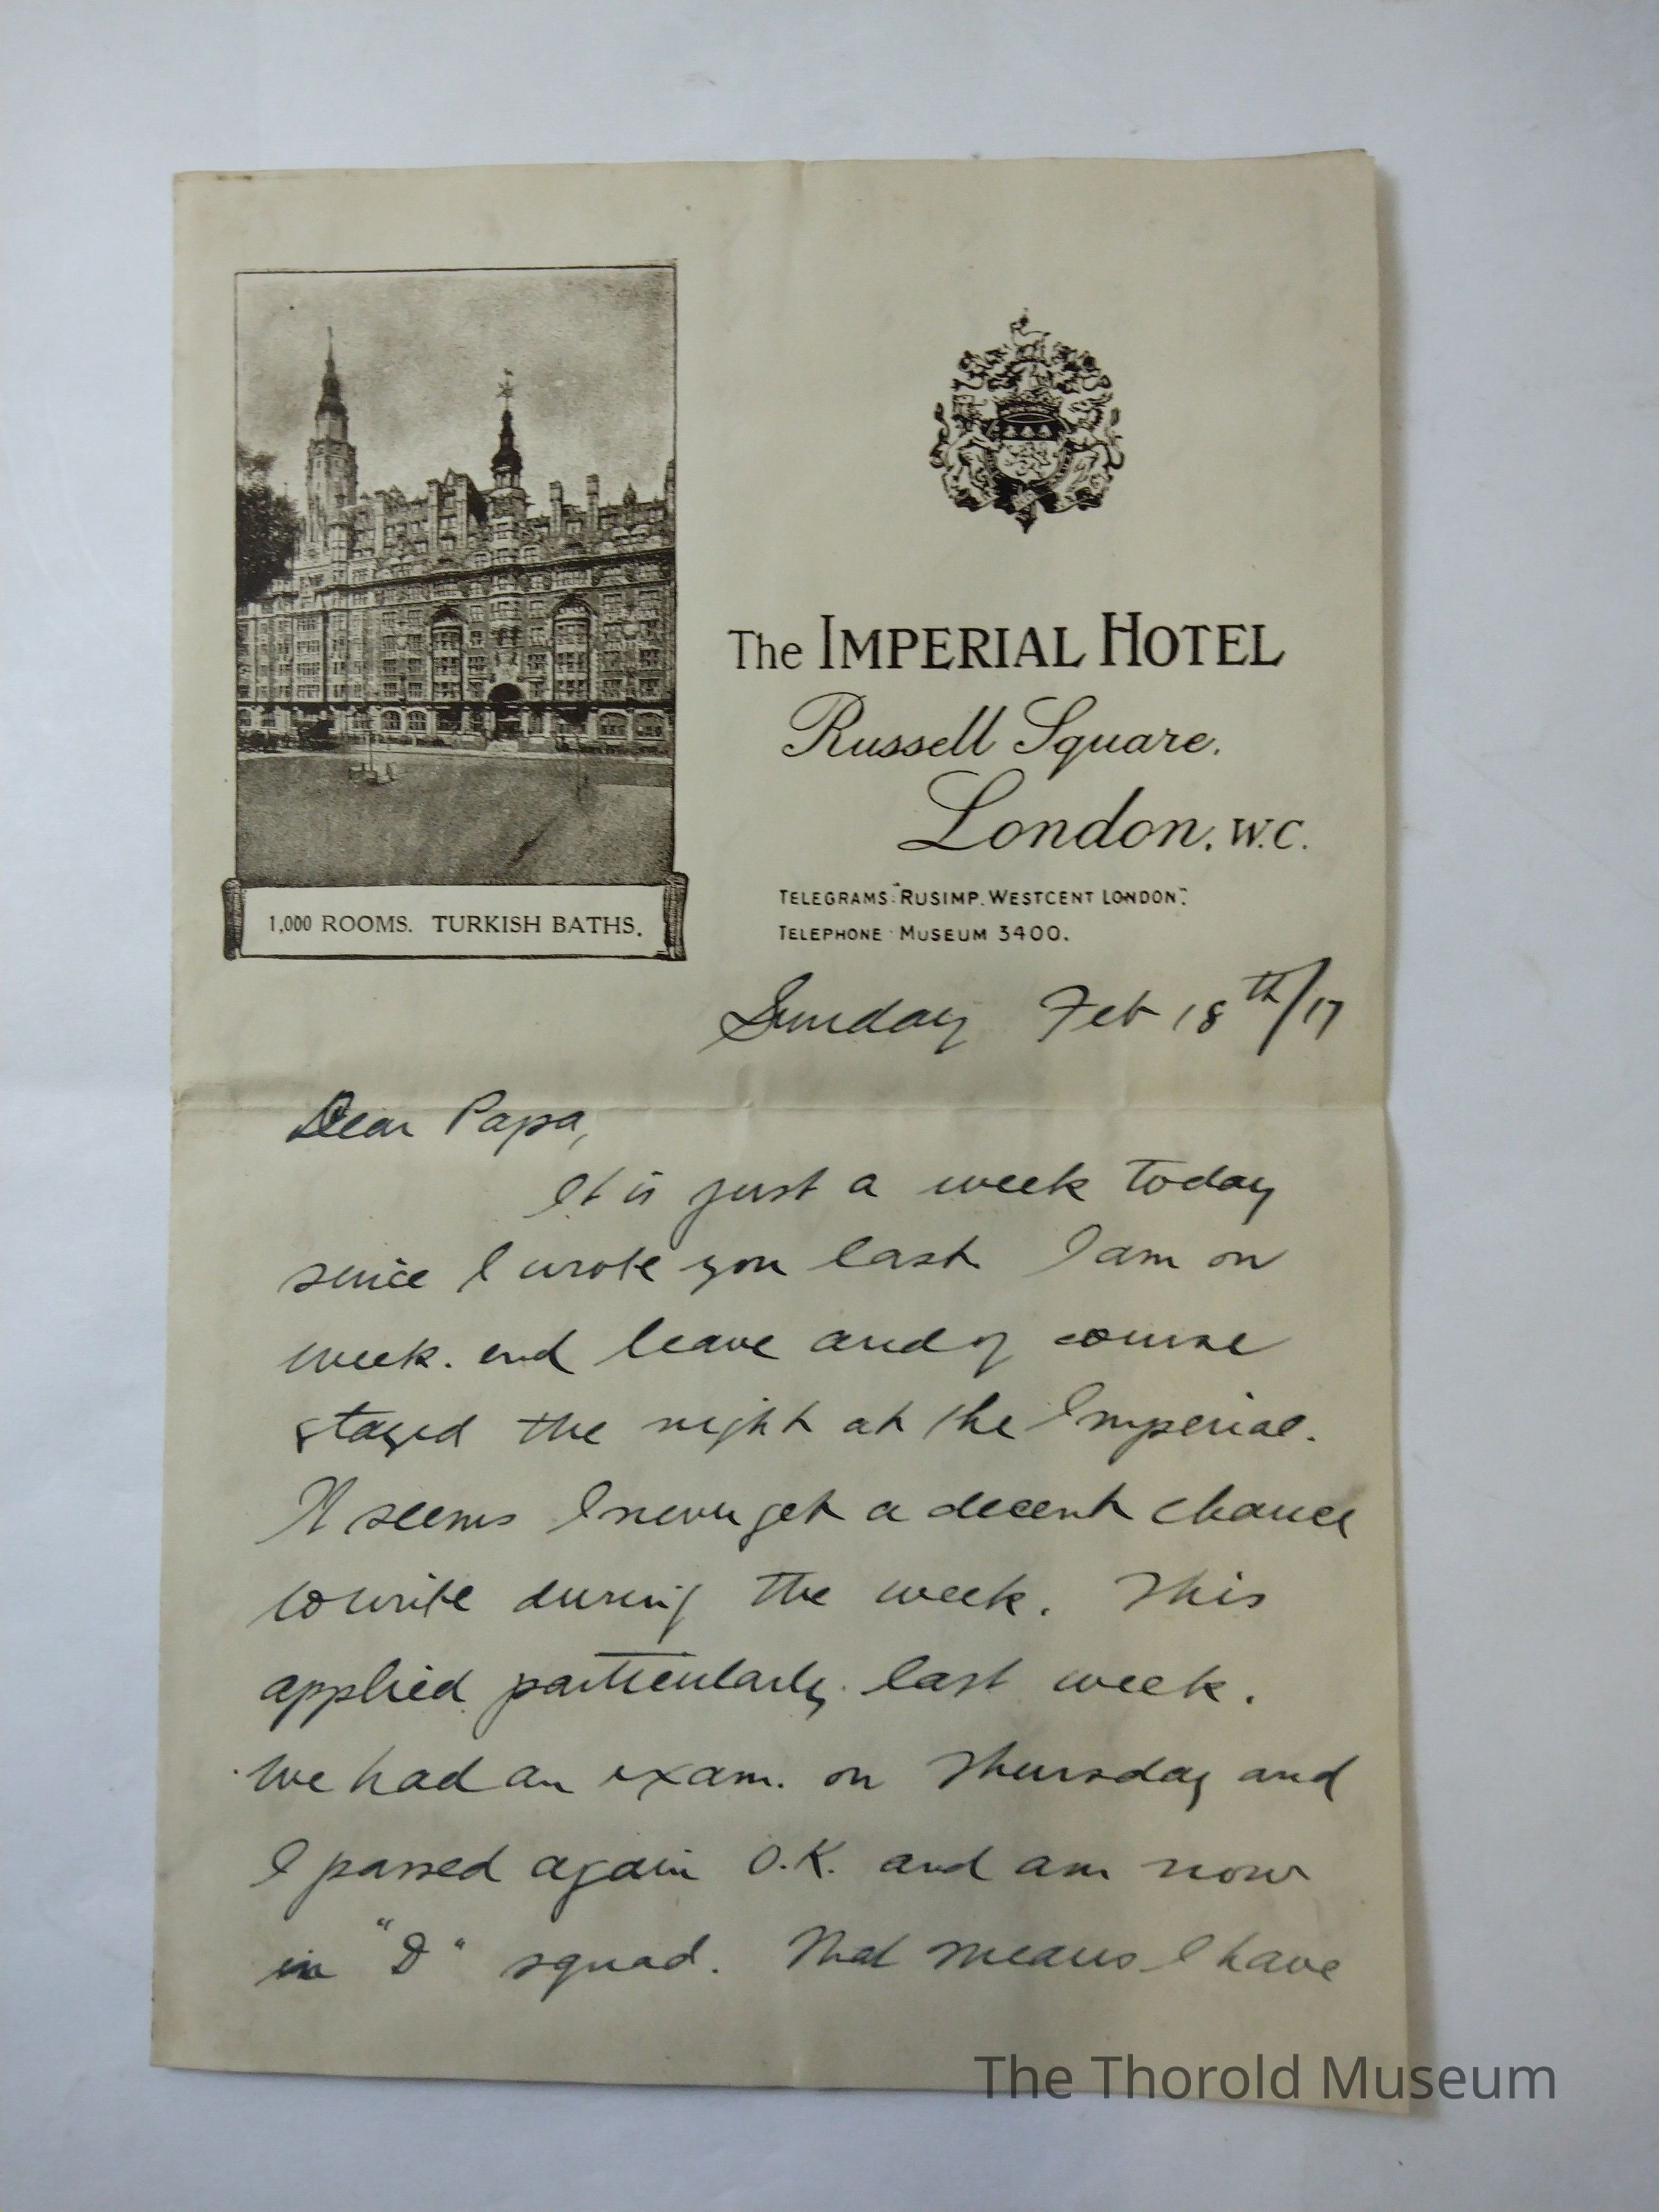 The IMPERIAL HOTEL
Russell Square.
London. W.C.
TELEGRAMS: "RUSIMP. WESTCENT LONDON".
TELEPHONE · MUSEUM 3400.
1,000 ROOMS. TURKISH BATHS.
Sunday Feb 18th/17
Dear Papa,
It is just a week today
since I wrote you last. I am on
week-end leave and of course
stayed the night at the Imperial.
It seems I never get a decent chance
to write during the week. This
applied particularly last week.
We had an exam. on Thursday and
I passed again O.K. and am now
in "D" squad. That means I have
The Thorold Museum